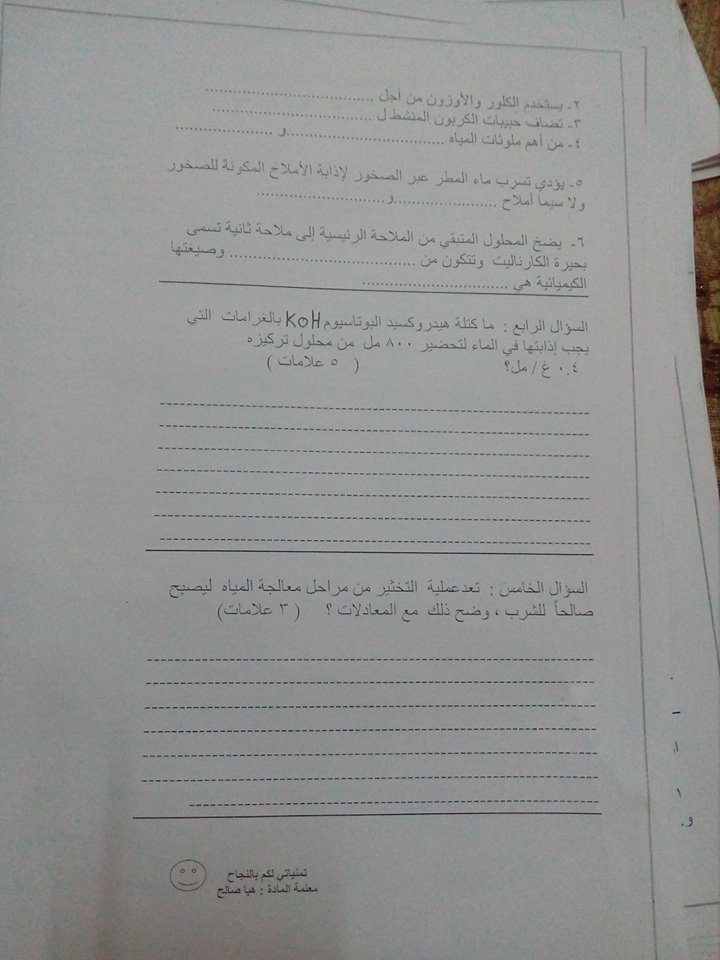 ٢- يستخدم الكلور والأوزون من أجل ....................................
٣- تضاف حبيبات الكربون المنشط ل ....................................
٤- من أهم ملوثات المياه ....................................و ......................
٥- يؤدي تسرب ماء المطر عبر الصخور لإذابة الأملاح المكونة للصخور
ولا سيما أملاح ........................و............................
٦- يضخ المحلول المتبقي من الملاحة الرئيسية إلى ملاحة ثانية تسمى
بحيرة الكارناليت وتتكون من ........................................ وصيغتها
الكيميائية هي ................................
السؤال الرابع : ما كتلة هيدروكسيد البوتاسيوم KoH بالغرامات التي
يجب إذابتها في الماء لتحضير ٨٠٠ مل من محلول تركيزه
٠.٤ غ / مل؟ ( ٥ علامات )
السؤال الخامس : تعدعملية التخثير من مراحل معالجة المياه ليصبح
صالحاً للشرب ، وضح ذلك مع المعادلات ؟ ( ٣ علامات)
تمنياتي لكم بالنجاح
معلمة المادة : هيا صالح